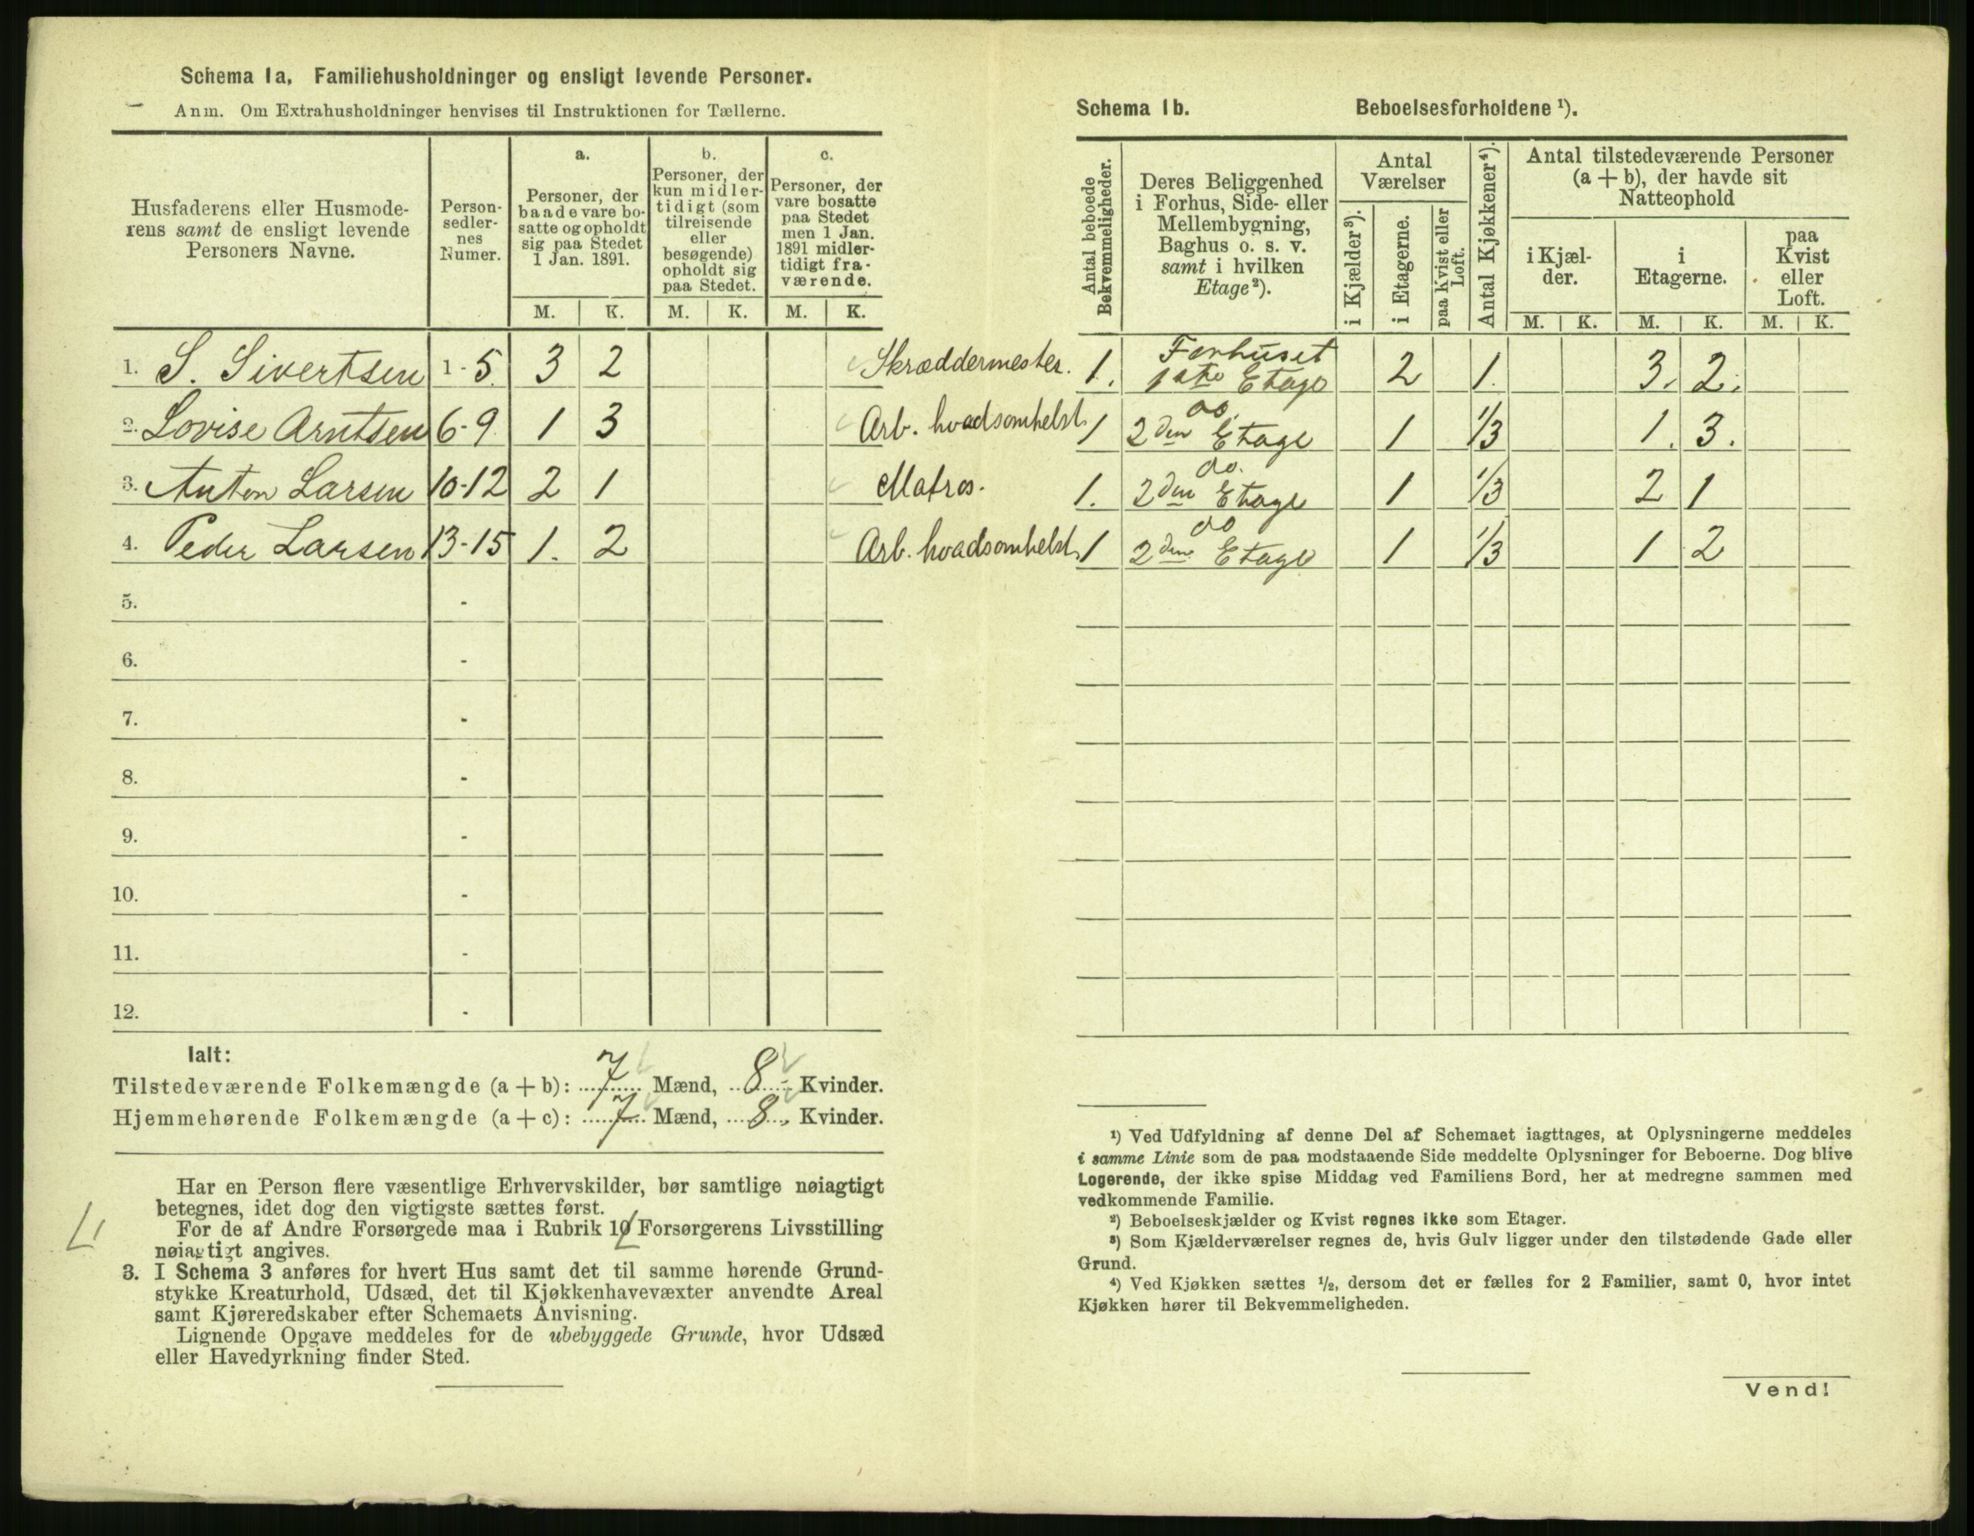 Schema 1a. Familiehusholdninger og ensligt levende Personer.
Anm. Om Extrahusholdninger henvises til Instruktionen for Tællerne.
Husfaderens eller Husmoderens samt de ensligt levende Personers Navne.
Personsedlernes Numer.
a.
Personer, der baade vare bosatte og opholdt sig paa Stedet 1 Jan. 1891.
b.
Personer, der kun midlertidigt (som tilreisende eller besøgende) opholdt sig paa Stedet.
c.
Personer, der vare bosatte paa Stedet men 1 Jan. 1891 midlertidigt fraværende.
M. K. M. K. M. K.
1. S. Sivertsen 1-5. 3 2 Skræddermester.
2. Lovise Arntsen 6-9 1 3 Arb. hvadsomhelst
3. Anton Larsen 10-12 2 1 Matros.
4. Peder Larsen 13-15 1. 2 Arb. hvadsomhelst
5. -
6. -
7. -
8. -
9. -
10. -
11. -
12. -
Ialt:
Tilstedeværende Folkemængde (a + b): 7 Mænd, 8 Kvinder.
Hjemmehørende Folkemængde (a + c): 7 Mænd, 8 Kvinder.
Har en Person flere væsentlige Erhvervskilder, bør samtlige nøiagtigt
betegnes, idet dog den vigtigste sættes først.
For de af Andre Forsørgede maa i Rubrik 10 Forsørgerens Livsstilling
nøiagtigt angives.
3. I Schema 3 anføres for hvert Hus samt det til samme hørende Grund-
stykke Kreaturhold, Udsæd, det til Kjøkkenhavevæxter anvendte Areal
samt Kjøreredskaber efter Schemaets Anvisning.
Lignende Opgave meddeles for de ubebyggede Grunde, hvor Udsæd
eller Havedyrkning finder Sted.
Schema 1b. Beboelsesforholdene ¹).
Antal beboede Bekvemmeligheder.
Deres Beliggenhed i Forhus, Side- eller Mellembygning, Baghus o. s. v. samt i hvilken Etage²).
Antal Værelser
i Kjælder³).
i Etagerne.
paa Kvist eller Loft.
Antal Kjøkkener⁴).
Antal tilstedeværende Personer (a + b), der havde sit Natteophold
i Kjælder.
i Etagerne.
paa Kvist eller Loft.
M. K. M. K. M. K.
1. Forhuset 1ste Etage 2 1. 3. 2.
1 do. 2den Etage 1 1/3 1. 3.
1. do. 2den Etage 1 1/3 2 1
1 do 2den Etage 1 1/3 1 2
¹) Ved Udfyldning af denne Del af Schemaet iagttages, at Oplysningerne meddeles
i samme Linie som de paa modstaaende Side meddelte Oplysninger for Beboerne. Dog blive
Logerende, der ikke spise Middag ved Familiens Bord, her at medregne sammen med
vedkommende Familie.
²) Beboelseskjælder og Kvist regnes ikke som Etager.
³) Som Kjælderværelser regnes de, hvis Gulv ligger under den tilstødende Gade eller
Grund.
⁴) Ved Kjøkken sættes ½, dersom det er fælles for 2 Familier, samt 0, hvor intet
Kjøkken hører til Bekvemmeligheden.
Vend!